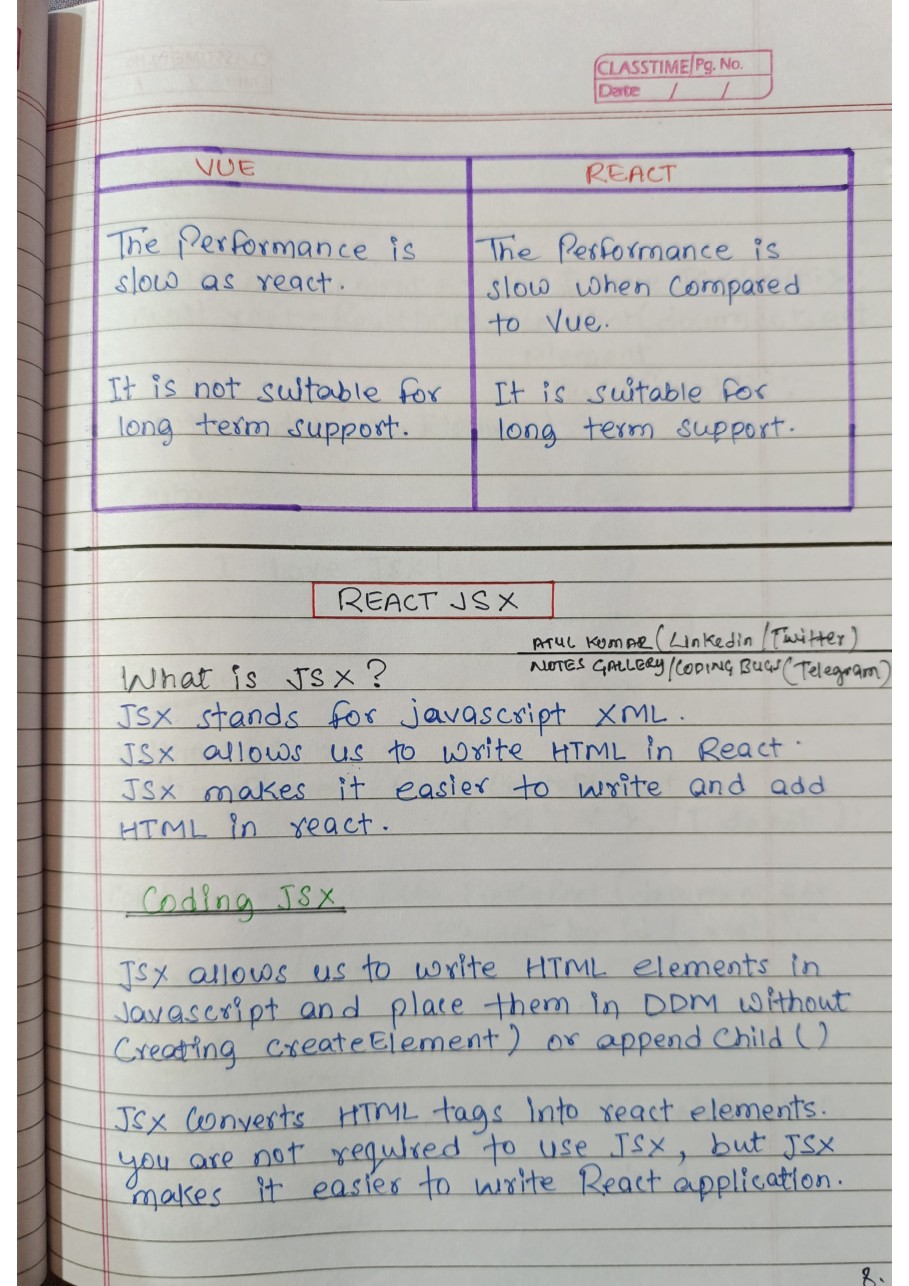 CLASSTIME Pg. No.
Date / /
VUE
REACT
The Performance is
slow as react.
The Performance is
slow when Compared
to Vue.
It is not suitable for
long term support.
It is suitable for
long term support.
REACT JSX
ATUL KUMAR (Linkedin / Twitter)
NOTES GALLERY / CODING BUGS (Telegram)
What is JSX?
JSX stands for javascript XML.
JSX allows us to write HTML in React.
JSX makes it easier to write and add
HTML in react.
Coding JSX
JSX allows us to write HTML elements in
Javascript and place them in DOM without
Creating createElement) or append Child ()
JSX Converts HTML tags into react elements.
you are not required to use JSX, but JSX
makes it easier to write React application.
8.